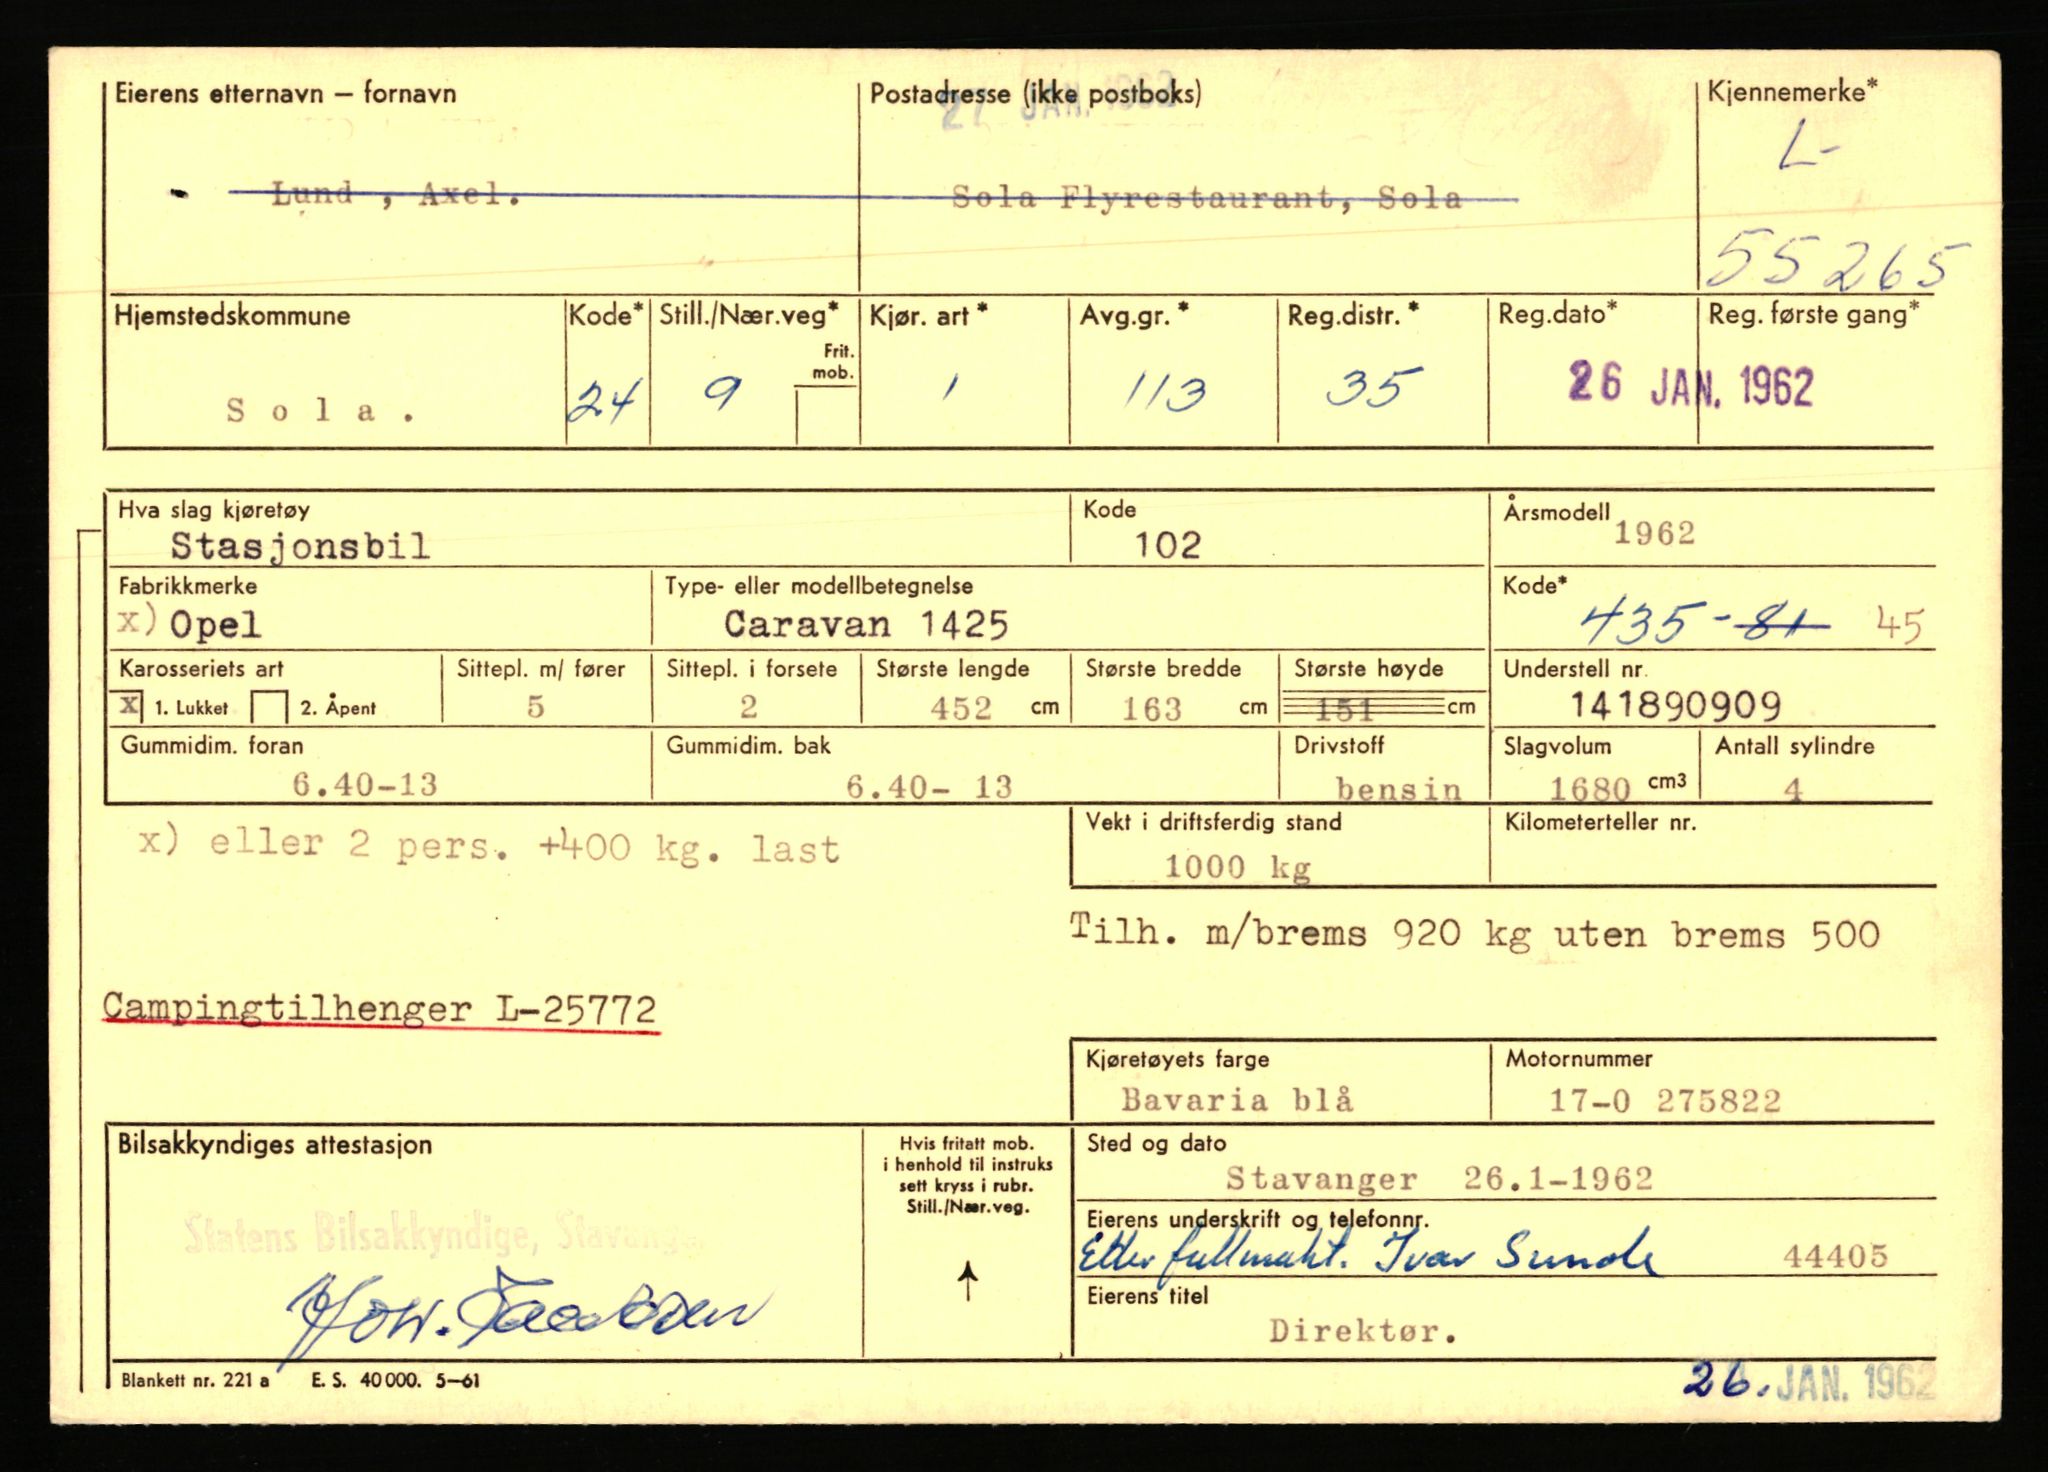 Eierens etternavn – fornavn
Postadresse (ikke postboks)
Kjennemerke*
27 JAN. 1962
L-
Lund , Axel.
Sola Flyrestaurant, Sola
55265
Hjemstedskommune
Kode*
Still./Nær.veg*
Kjør. art *
Avg.gr. *
Reg.distr. *
Reg.dato*
Reg. første gang*
Frit.
mob.
Sola.
24
9
1
113
35
26 JAN. 1962
Hva slag kjøretøy
Kode
Årsmodell
Stasjonsbil
102
1962
Fabrikkmerke
Type- eller modellbetegnelse
Kode*
x) Opel
Caravan 1425
435-81 45
Karosseriets art
Sittepl. m/ fører
Sittepl. i forsete
Største lengde
Største bredde
Største høyde
Understell nr.
x 1. Lukket
2. Åpent
5
2
452 cm
163 cm
151 cm
141890909
Gummidim. foran
Gummidim. bak
Drivstoff
Slagvolum
Antall sylindre
6.40-13
6.40- 13
bensin
1680 cm3
4
x) eller 2 pers. +400 kg. last
Vekt i driftsferdig stand
Kilometerteller nr.
1000 kg
Tilh. m/brems 920 kg uten brems 500
Campingtilhenger L-25772
Kjøretøyets farge
Motornummer
Bavaria blå
17-0 275822
Bilsakkyndiges attestasjon
Hvis fritatt mob.
i henhold til instruks
sett kryss i rubr.
Still./Nær.veg.
Sted og dato
Stavanger 26.1-1962
Statens Bilsakkyndige, Stavanger
Eierens underskrift og telefonnr.
Etter fullmakt. Ivar Sunde 44405
Eierens titel
Direktør.
Blankett nr. 221 a E. S. 40 000. 5-61
26. JAN. 1962